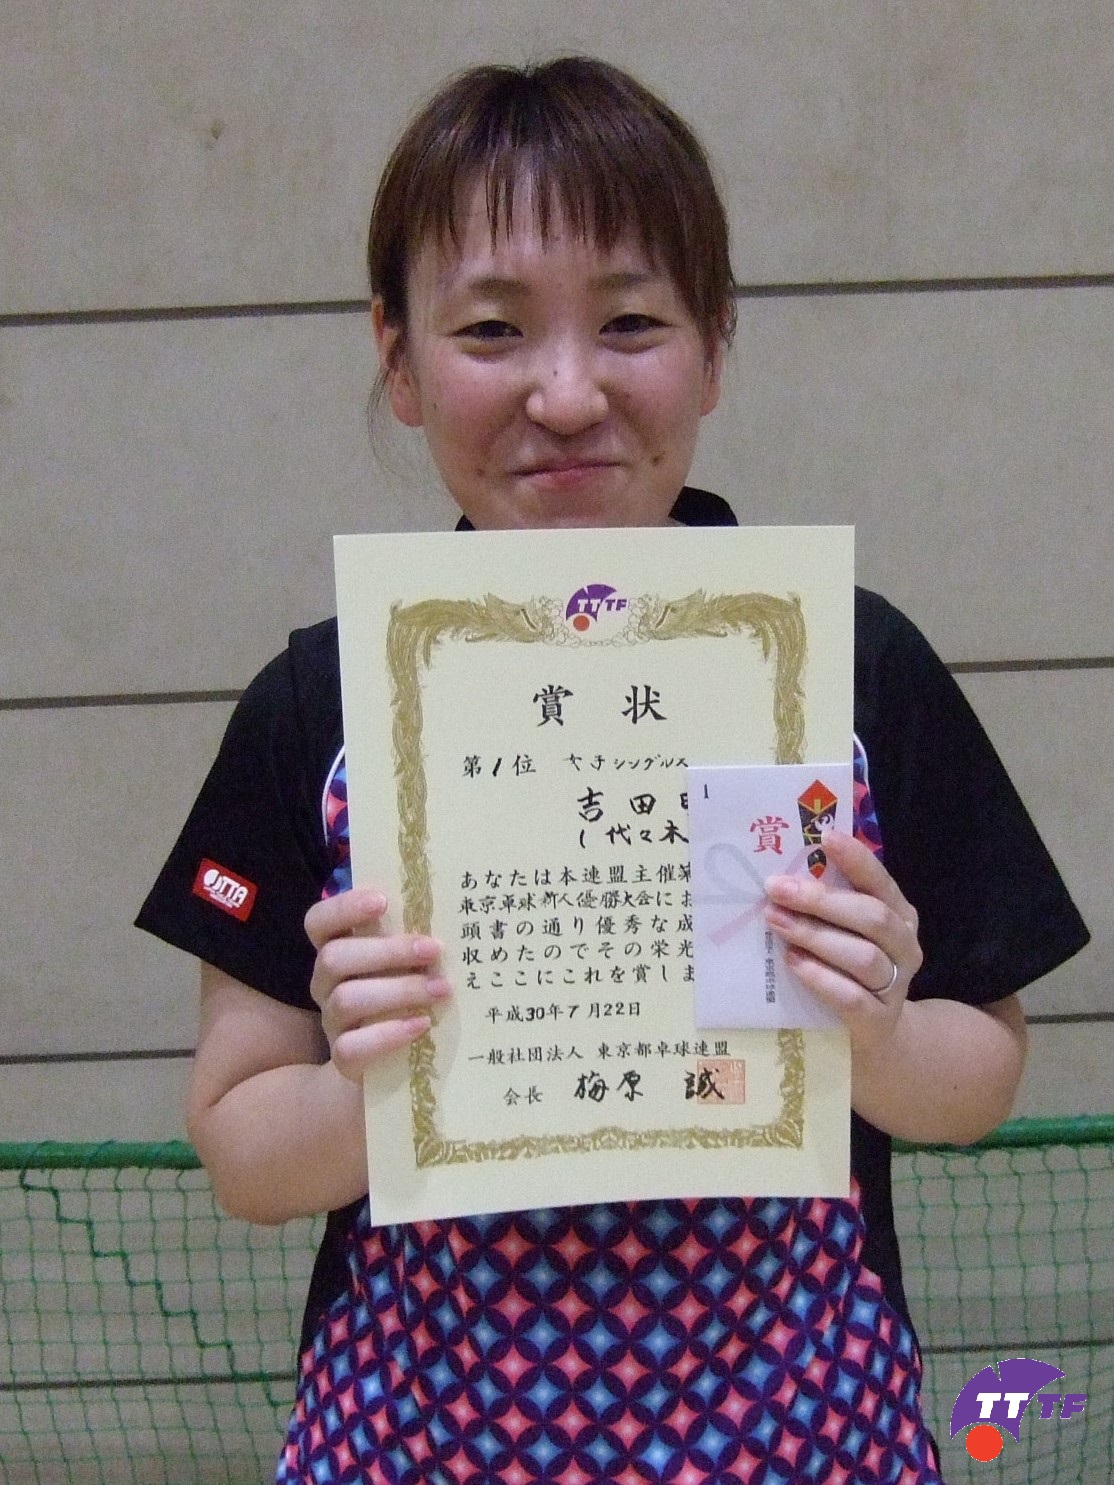 TTTF
賞 状
第1位 女子シングルス
吉田
(代々木
あなたは本連盟主催第
東京卓球新人優勝大会にお
頭書の通り優秀な成
収めたのでその栄光
えここにこれを賞しま
平成30年7月22日
一般社団法人 東京都卓球連盟
会長 梅原 誠
1
賞
JTTA
TTTF